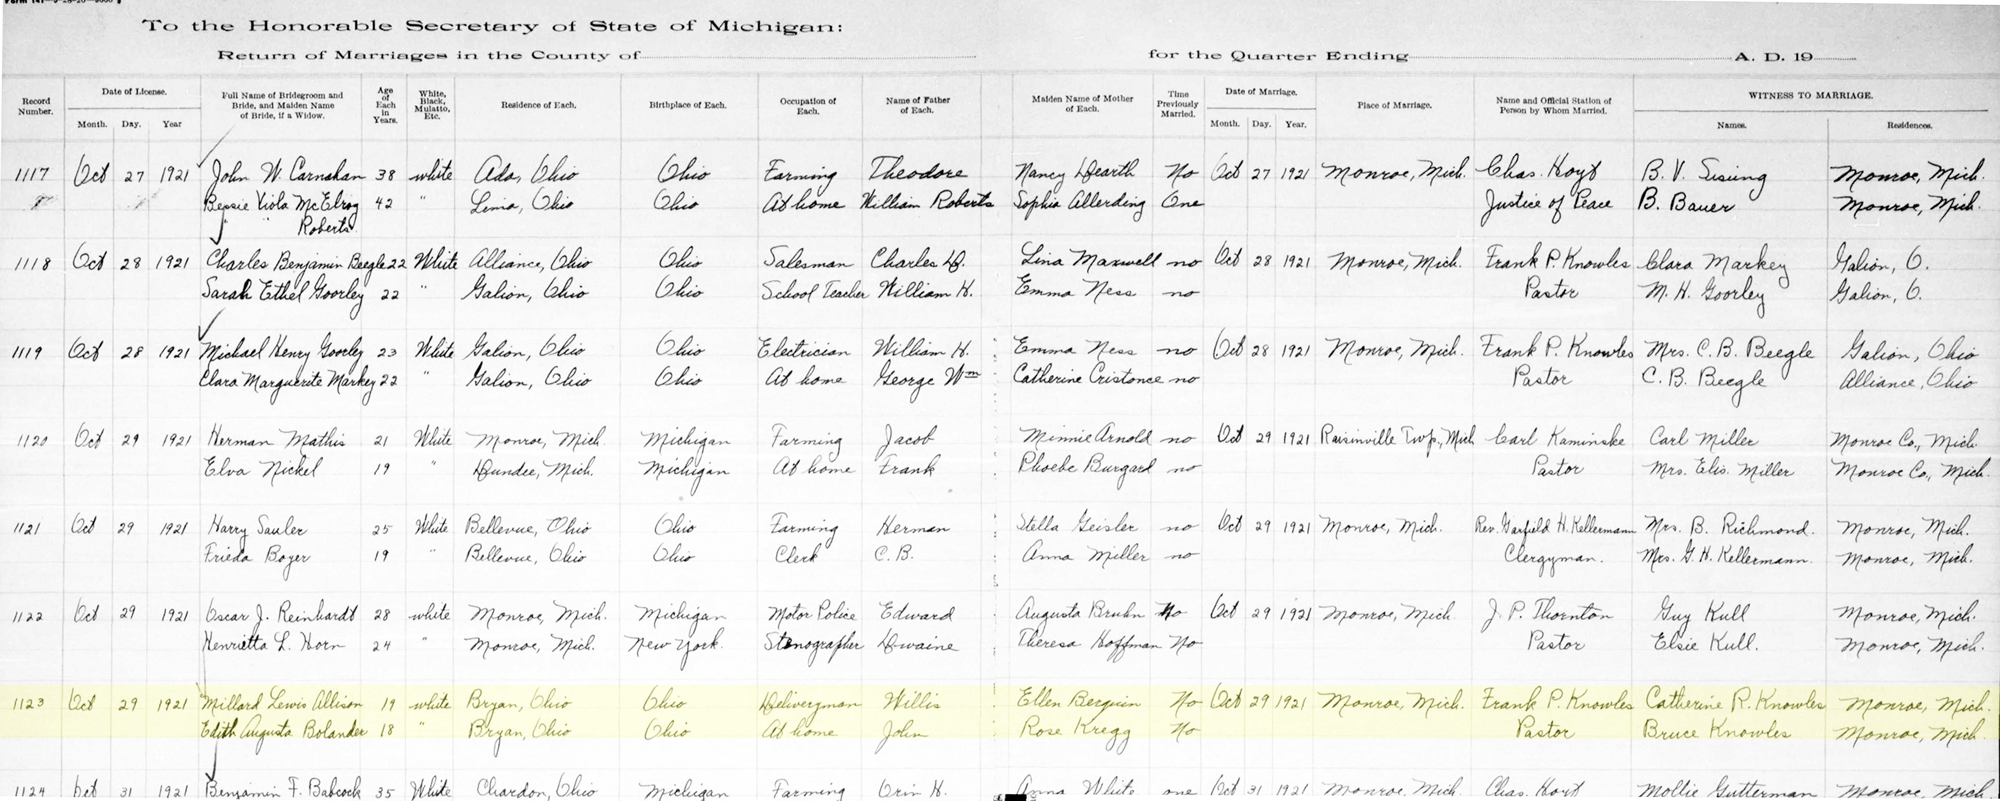 To the Honorable Secretary of State of Michigan:
Return of Marriages in the County of
for the Quarter Ending
A. D. 19
Record Number. Date of License. Month. Day. Year Full Name of Bridegroom and Bride, and Maiden Name of Bride, if a Widow. Age of Each in Years. White, Black, Mulatto, Etc. Residence of Each. Birthplace of Each. Occupation of Each. Name of Father of Each. Maiden Name of Mother of Each. Time Previously Married. Date of Marriage. Month. Day. Year. Place of Marriage. Name and Official Station of Person by Whom Married. WITNESS TO MARRIAGE. Names. Residences.
1117 Oct 27 1921 John W. Carnahan 38 white Ada, Ohio Ohio Farming Theodore Nancy Dearth No Oct 27 1921 Monroe, Mich. Chas. Hoyt B. V. Sisung Monroe, Mich.
Bessie Viola McElroy 42 " Lima, Ohio Ohio At home William Roberts Sophia Allerding One Justice of Peace B. Bauer Monroe, Mich.
Roberts
1118 Oct 28 1921 Charles Benjamin Beegle 22 White Alliance, Ohio Ohio Salesman Charles D. Lina Maxwell no Oct 28 1921 Monroe, Mich. Frank P. Knowles Clara Markey Galion, O.
Sarah Ethel Goorley 22 " Galion, Ohio Ohio School Teacher William H. Emma Ness no Pastor M. H. Goorley Galion, O.
1119 Oct 28 1921 Michael Henry Goorley 23 White Galion, Ohio Ohio Electrician William H. Emma Ness no Oct 28 1921 Monroe, Mich. Frank P. Knowles Mrs. C. B. Beegle Galion, Ohio
Clara Marguerite Markey 22 " Galion, Ohio Ohio At home George Wm Catherine Cristonce no Pastor C. B. Beegle Alliance, Ohio
1120 Oct 29 1921 Herman Mathis 21 White Monroe, Mich. Michigan Farming Jacob Minnie Arnold no Oct 29 1921 Raisinville Twp., Mich Carl Kaminske Carl Miller Monroe Co., Mich.
Elva Nickel 19 " Dundee, Mich. Michigan At home Frank Phoebe Burgard no Pastor Mrs. Elis. Miller Monroe Co., Mich.
1121 Oct 29 1921 Harry Sauler 25 White Bellevue, Ohio Ohio Farming Herman Stella Geisler no Oct 29 1921 Monroe, Mich. Rev. Garfield H. Kellermann Mrs. B. Richmond. Monroe, Mich.
Frieda Boyer 19 " Bellevue, Ohio Ohio Clerk C. B. Anna Miller no Clergyman. Mrs. G. H. Kellermann. Monroe, Mich.
1122 Oct 29 1921 Oscar J. Reinhardt 28 white Monroe, Mich. Michigan Motor Police Edward Augusta Bruhn No Oct 29 1921 Monroe, Mich. J. P. Thornton Guy Kull Monroe, Mich.
Henrietta L. Horn 24 " Monroe, Mich. New York. Stenographer Dwaine Theresa Hoffman No Pastor Elsie Kull. Monroe, Mich.
1123 Oct 29 1921 Millard Lewis Allison 19 white Bryan, Ohio Ohio Deliveryman Willis Ellen Berguin No Oct 29 1921 Monroe, Mich. Frank P. Knowles Catherine R. Knowles Monroe, Mich.
Edith Augusta Bolander 18 " Bryan, Ohio Ohio At home John Rose Kregg No Pastor Bruce Knowles Monroe, Mich.
1124 Oct 31 1921 Benjamin F. Babcock 35 White Chardon, Ohio Michigan Farming Orin H. Anna White one Oct 31 1921 Monroe, Mich. Chas. Hoyt Mollie Gutterman Monroe, Mich.